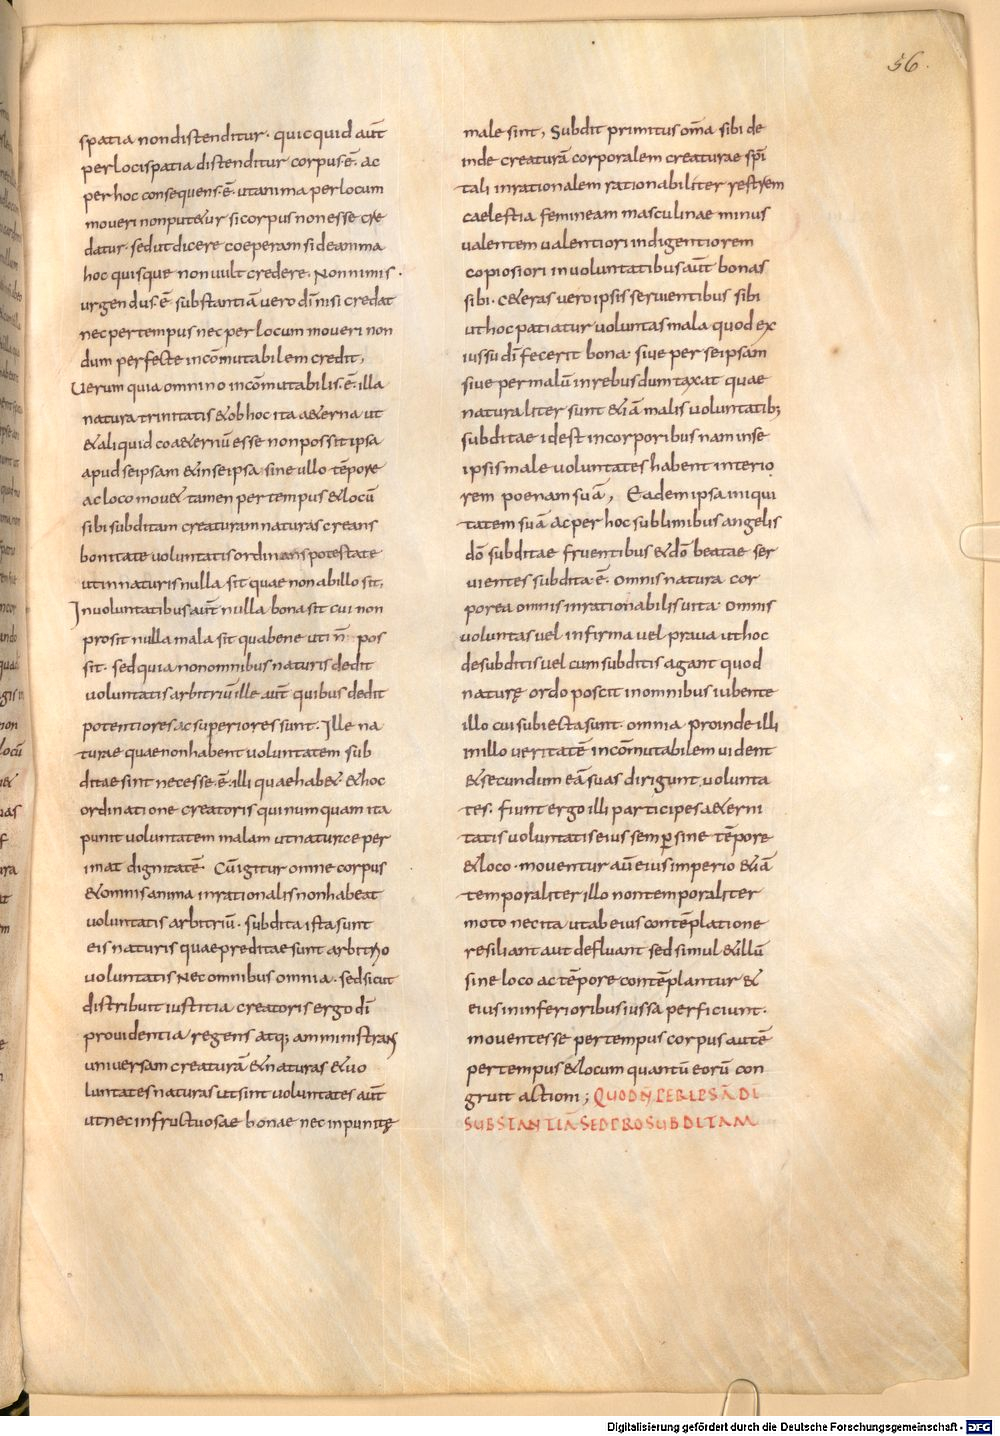 56.
spatia non distenditur · quicquid aut̄
per loci spatia distenditur corpus · ē · ac
per hoc consequens · ē · ut anima per locum
moueri non putetur si corpus non esse cre
datur · sed ut dicere coeperam si de anima
hoc quisque non uult credere · Non nimis ·
urgendus · ē · substantiā uero dī nisi credat
nec per tempus nec per locum moueri non
dum perfecte incōmutabilem credit;
Uerum quia omnino incōmutabilis · ē · illa
natura trinitatis & ob hoc ita aeterna ut
& aliquid coaeternū esse non possit ipsa
apud seipsam & in seipsa sine ullo tēpore
ac loco mouet tamen per tempus & locū
sibi subditam creaturam naturas creans
bonitate uoluntatis ordinans potestate
ut in naturis nulla sit quae non ab illo sit;
In uoluntatibus aut̄ nulla bona sit cui non
prosit nulla mala sit qua bene uti n̄ pos
sit · sed quia non omnibus naturis dedit
uoluntatis arbitriū ille aut̄ quibus dedit
potentiores ac superiores sunt · Ille na
turae quae non habent uoluntatem sub
ditae sint necesse · ē · illi quae habet & hoc
ordinatione creatoris qui numquam ita
punit uoluntatem malam ut naturae per
imat dignitatē · Cū igitur omne corpus
& omnis anima inrationalis non habeat
uoluntatis arbitriū · subdita ista sunt
eis naturis quae preditae sunt arbitrio
uoluntatis Nec omnibus omnia · sed sicut
distribuit iustitia creatoris ergo dī
prouidentia regens atq; amministrans
uniuersam creaturā & naturas & uo
luntates naturas ut sint uoluntates aut̄
ut nec infructuosae bonae nec inpunitę
male sint, Subdit primitus om̄a sibi de
inde creaturā corporalem creaturae spī
tali inrationalem rationabiliter restrem
caelestia femineam masculinae minus
ualentem ualentiori indigentiorem
copiosiori in uoluntatibus aut̄ bonas
sibi · ceteras uero ipsis seruientibus sibi
ut hoc patiatur uoluntas mala quod ex
iussu dī fecerit bona · siue per seipsam
siue per malū in rebus dumtaxat quae
naturaliter sunt & iā malis uoluntatib;
subditae idest in corporibus nam in se
ipsis male uoluntates habent interio
rem poenam suā, Eadem ipsa iniqui
tatem suā ac per hoc sublimibus angelis
dō subditae fruentibus & dō beatae ser
uientes subdita · ē · omnis natura cor
porea omnis inrationabilis uita · omnis
uoluntas uel infirma uel praua ut hoc
de subditis uel cum subditis agant quod
naturę ordo poscit in omnibus iubente
illo cui subiecta sunt · omnia proinde illi
in illo ueritatē incōmutabilem uident
& secundum eā suas dirigunt uolunta
tes · fiunt ergo illi participes aeterni
tatis uoluntatis eius semꝑ sine tēpore
& loco · mouentur aut̄ eius imperio & iā
temporaliter illo non temporaliter
moto nec ita ut ab eius contēplatione
resiliant aut defluant sed simul & illū
sine loco ac tēpore contēplantur &
eius in inferioribus iussa perficiunt ·
mouentes se per tempus corpus autē
per tempus & locum quantū eorū con
gruit actioni; QUOD N̄ PER IPSĀ DĪ
SUBSTANTIĀ SED PRO SUBDITAM
Digitalisierung gefördert durch die Deutsche Forschungsgemeinschaft - DFG